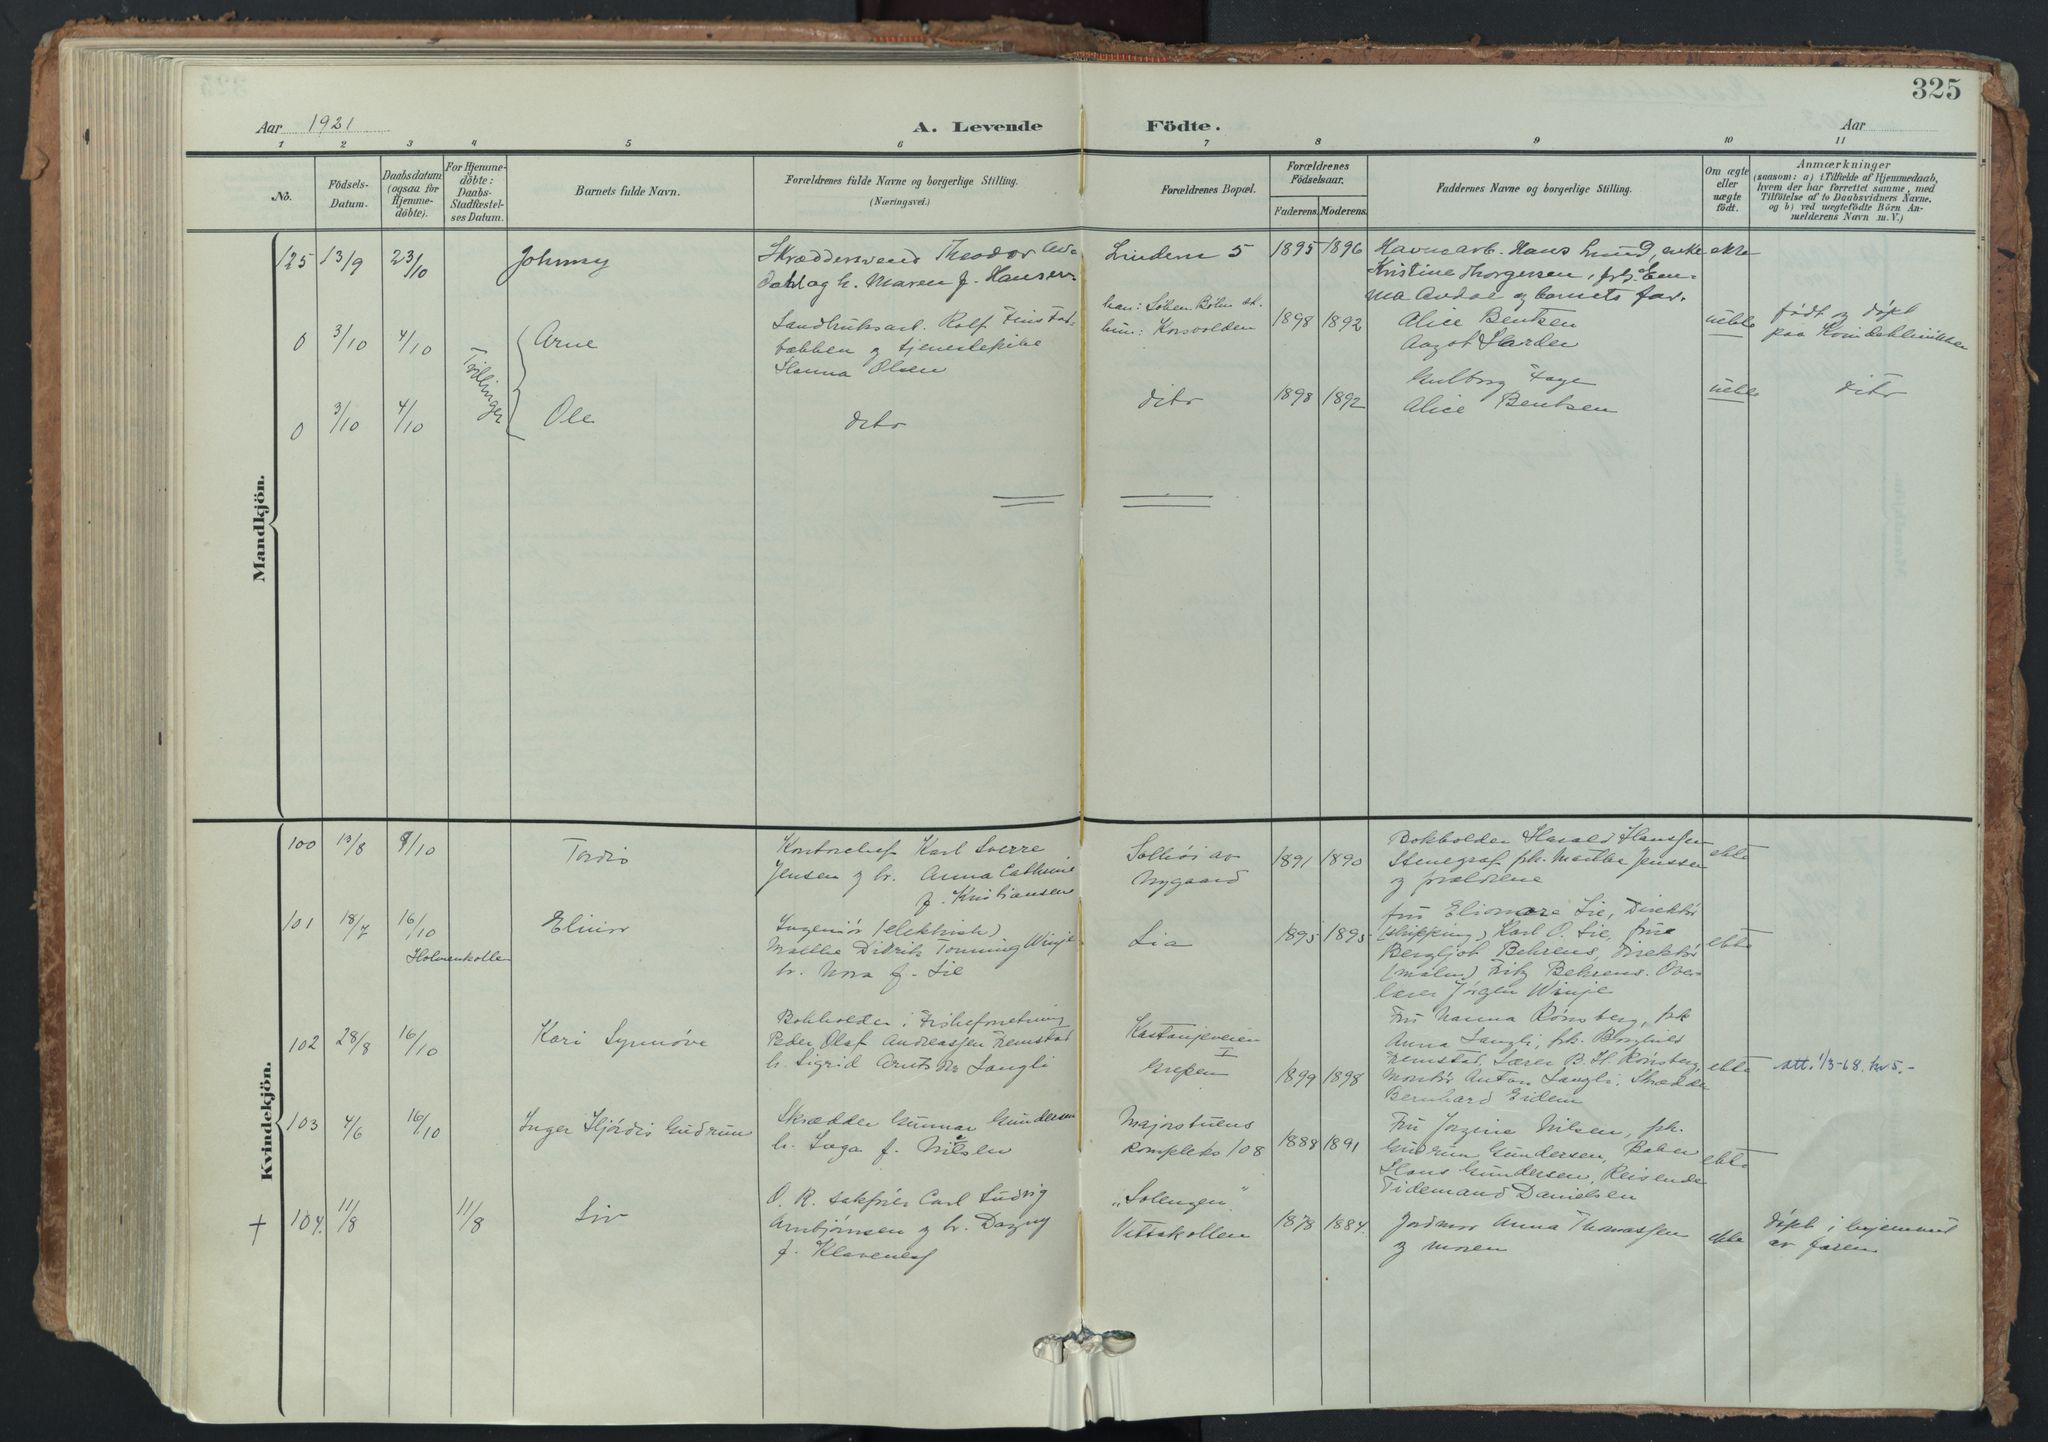 325
Aar 1921
A. Levende Födte.
Aar
1 2 3 4 5 6 7 8 9 10 11
No.
Födsels-Datum.
Daabsdatum (ogsaa for Hjemme-döbte).
For Hjemme-döbte: Daabs-Stadfæstel-ses Datum.
Barnets fulde Navn.
Forældrenes fulde Navne og borgerlige Stilling.
(Næringsvei.)
Forældrenes Bopæl.
Forældrenes Födselsaar.
Faderens. Moderens.
Faddernes Navne og borgerlige Stilling.
Om ægte eller uægte födt.
Anmærkninger
(saasom: a) i Tilfælde af Hjemmedaab,
hvem der har forrettet samme, med
Tilföielse af to Daabsvidners Navne.
og b) ved uægtefödte Börn An-
melderens Navn m. V.)
Mandkjön.
125 13/9 23/10 Johnny
Skræddersvend Theodor Av-
dahl og h. Maren f. Hansen
Lindern 5
1895 1896
Havnearb. Hans Lund, enke
Kristine Thorgersen, frk. Em-
ma Avdal og barnets far.
ekte
0 3/10 4/10 Tvillinger Arne
Landbruksarb. Rolf Finstad-
bækken og tjenestepike
Hanna Olsen
han: Solben Bøler
hun: Korsvolden
1898 1892
Alice Bentsen
Aagot Harder
uekte
født og døpt
paa Kvindeklinikken
0 3/10 4/10 Ole
dito
dito
1898 1892
Gulborg Fage
Alice Bentsen
uekte
dito
Kvindekjön.
100 13/8 9/10 Tordis
Kontorchef Karl Sverre
Jensen og h. Anna Cathrine
f. Kristiansen
Solhøi av
Nygaard
1891 1890
Bokholder Harald Hanssen
Stenograf frk. Marthe Jenssen
og forældrene
ekte
101 18/7 16/10
Holmenkollen
Elinor
Ingeniør (elektrisk)
Mathe Didrik Tonning Winje
h. Nora f. Lie
Lia
1895 1895
fru Elionore Lie, Direktør
(shipping) Karl O. Lie, frue
Bergljot Behrens, Direktør
(malm) Fritz Behrens. Over-
lærer Jørgen Winje
ekte
102 28/8 16/10 Kari Synnøve
Bokholder i Fiskeforretning
Peder Olaf Andreassen Fremstad
h. Sigrid Langli
Kastanjeveien
I
Grefsen
1899 1898
Fru Nanna Rønsberg, frk
Anna Langli, frk. Borghild
Fremstad, Lærer B. H. Rønsberg,
Montør Anton Langli, Skrædder
Bernhard Eidem
ekte
att. 1/3-68. kr 5.-
103 4/6 16/10 Inger Hjørdis Gudrun
Skrædder Gunnar Gundersen
h. Inga f. Nilsen
Majorstuens
kompleks 108
1888 1891
Fru Jorgine Nilsen, frk.
Gudrun Gundersen, Baker
Hans Gundersen, Reisende
Tidemand Danielsen
ekte
+ 104. 11/8 11/8 Liv
O. R. sakfører Carl Ludvig
Arnbjørnsen og h. Dagny
f. Klaveness
"Solengen"
Vettakollen
1878 1884.
Jordmor Anna Thomassen
og moren
ekte
døpt i hjemmet
av faren